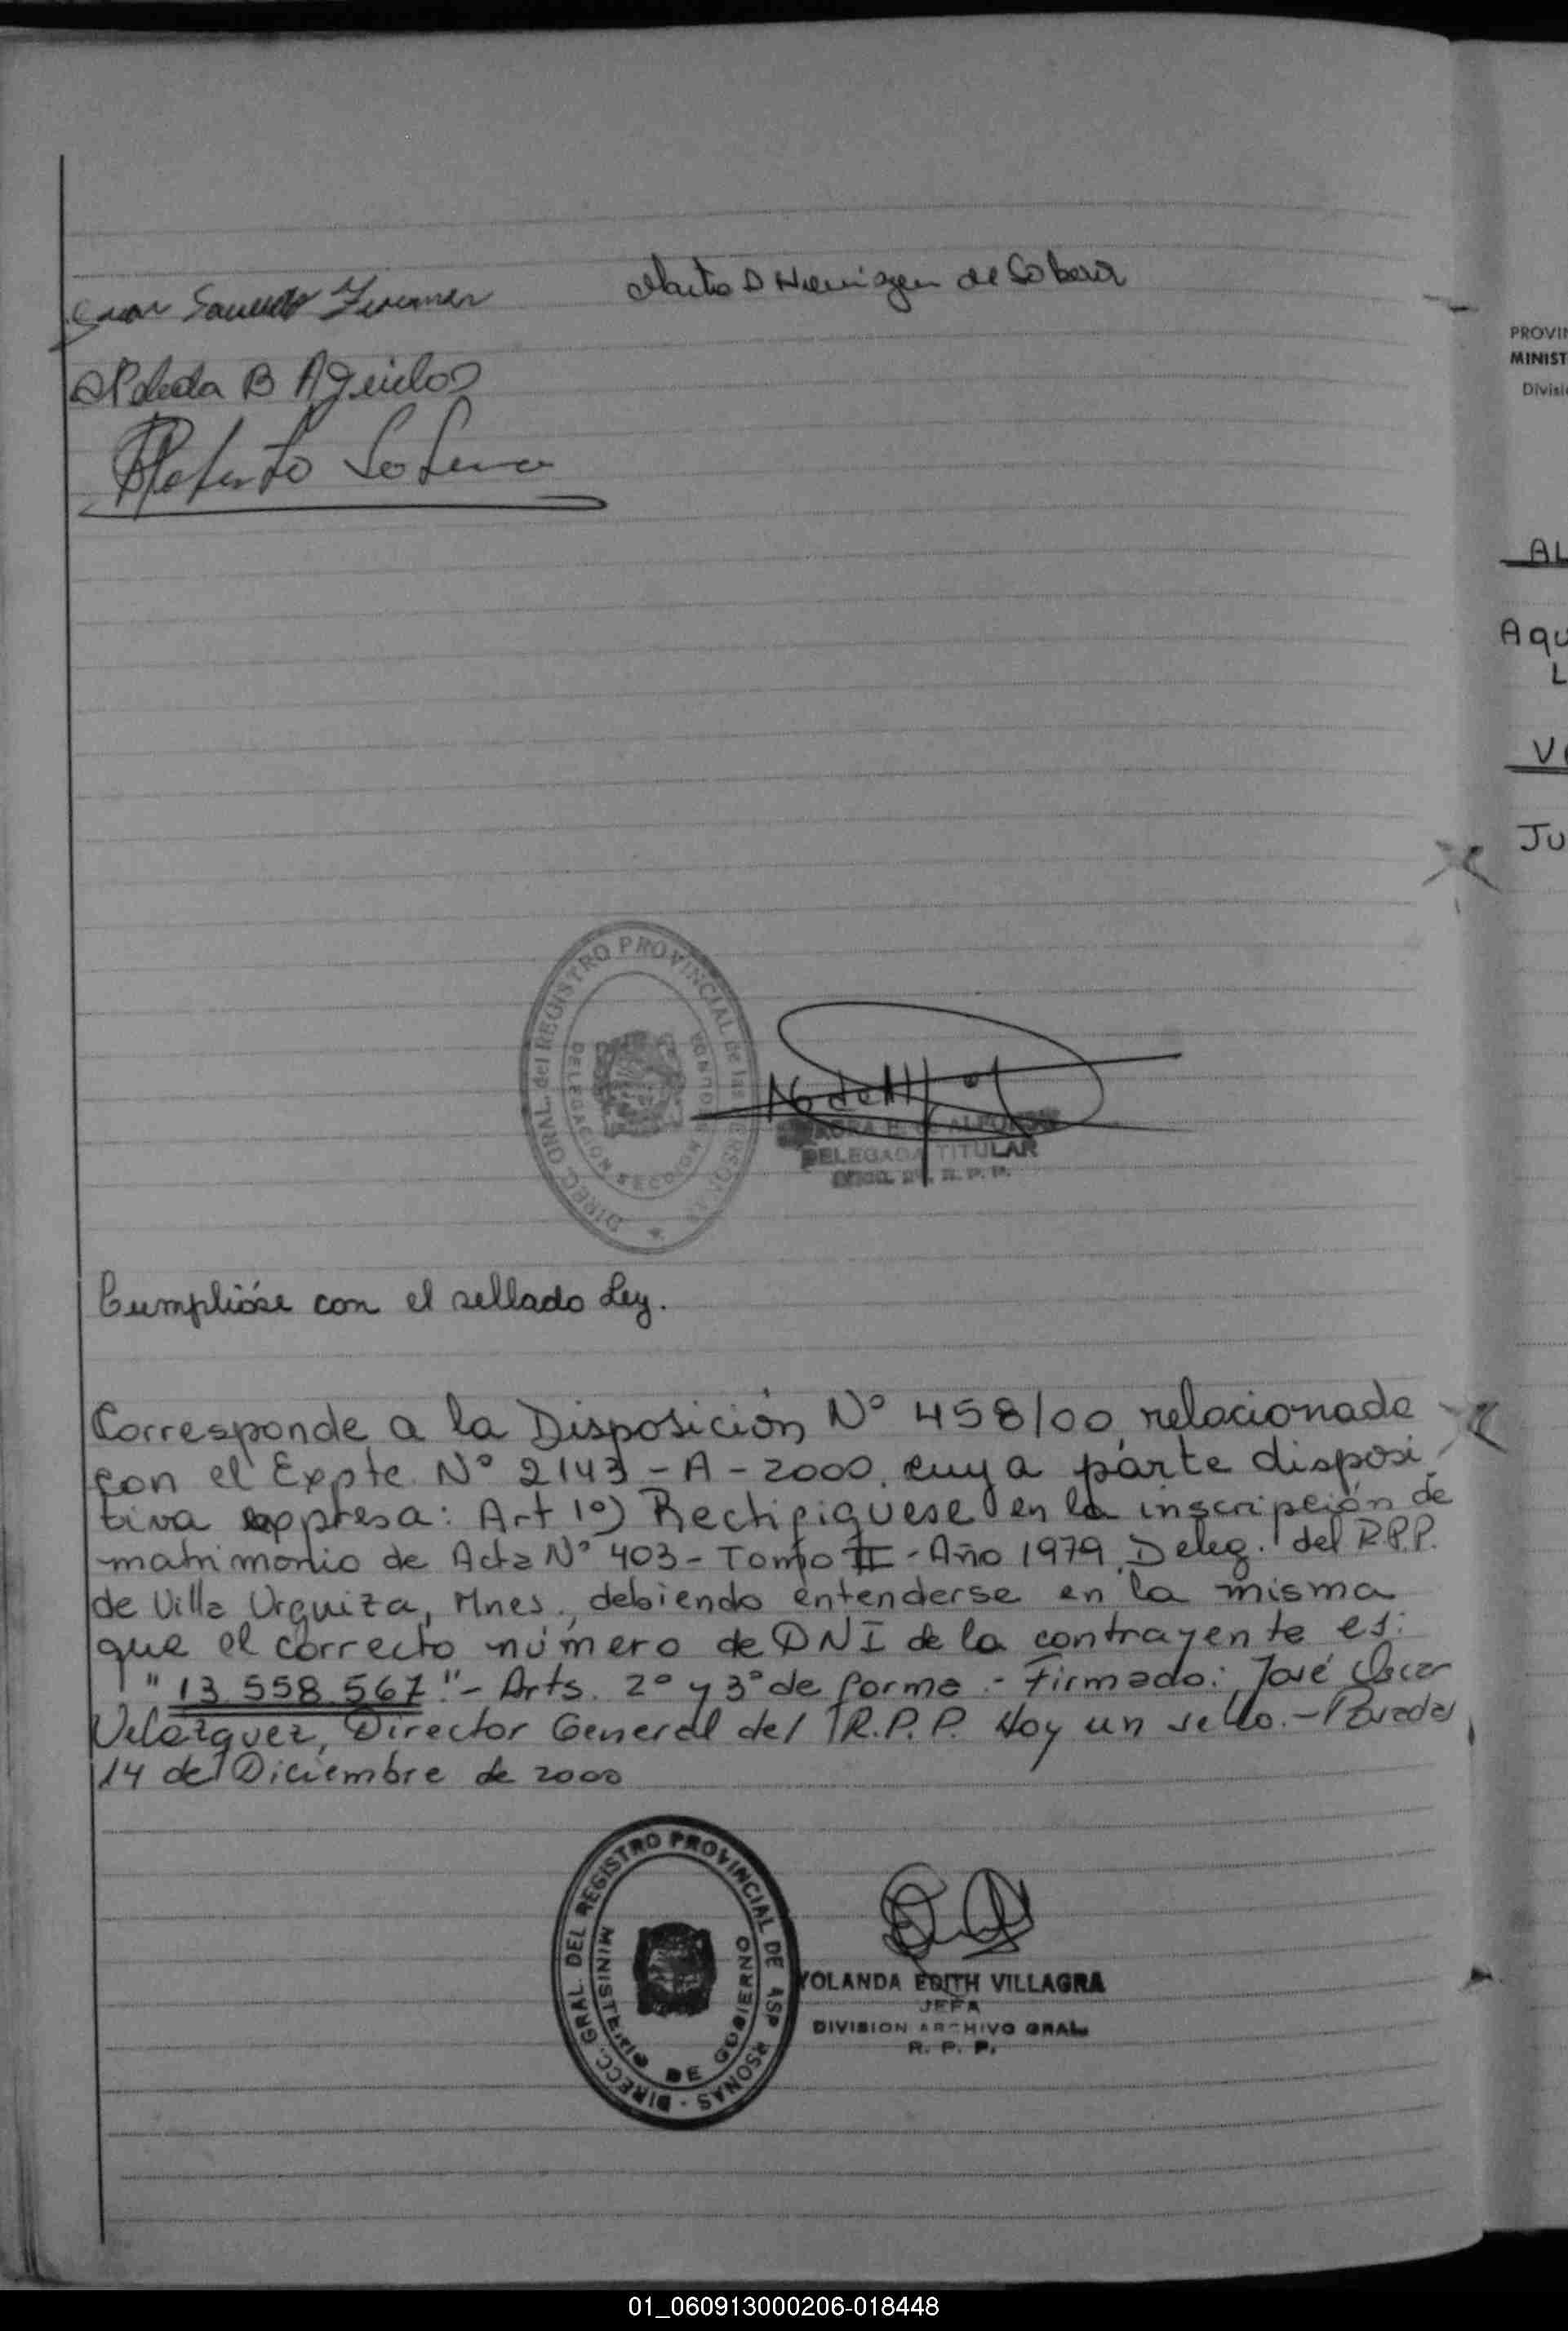 Marta D Hennigen de Sobera
B Aguelos
Roberto Sobera
DIREC. GRAL. del REGISTRO PROVINCIAL de las PERSONAS
DELEGACION SECCION
DELEGADA TITULAR
R. P. P.
Cumplióse con el sellado Ley.
Corresponde a la Disposición Nº 458/00, relacionada
con el Expte. Nº 2143-A-2000, cuya parte disposi
tiva expresa: Art 1º) Rectifiquese en la inscripción de
matrimonio de Acta Nº 403-Tomo II-Año 1979, Deleg. del R.P.P.
de Villa Urquiza, Mnes., debiendo entenderse en la misma
que el correcto número de DNI de la contrayente es:
"13.558.567."- Arts. 2º y 3º de forma.- Firmado: José Oscar
Velazquez, Director General del R.P.P. Hay un sello.- Posadas
14 de Diciembre de 2000
DIRECC. GRAL. DEL REGISTRO PROVINCIAL DE
MINISTERIO DE GOBIERNO
YOLANDA EDITH VILLAGRA
JEFA
DIVISION ARCHIVO GRAL.
R. P. P.
PROVIN
MINIST
Divisi
AL
AQU
L
V
JU
01_060913000206-018448